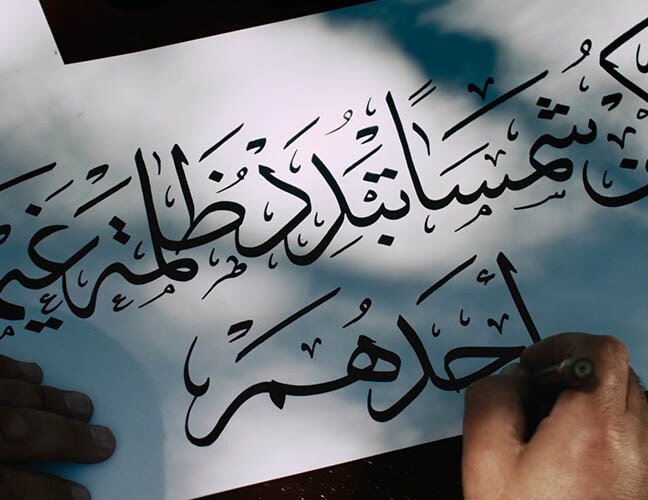 كن شمسًا تُبَدِّد ظُلمة غَيم
أحدهُم